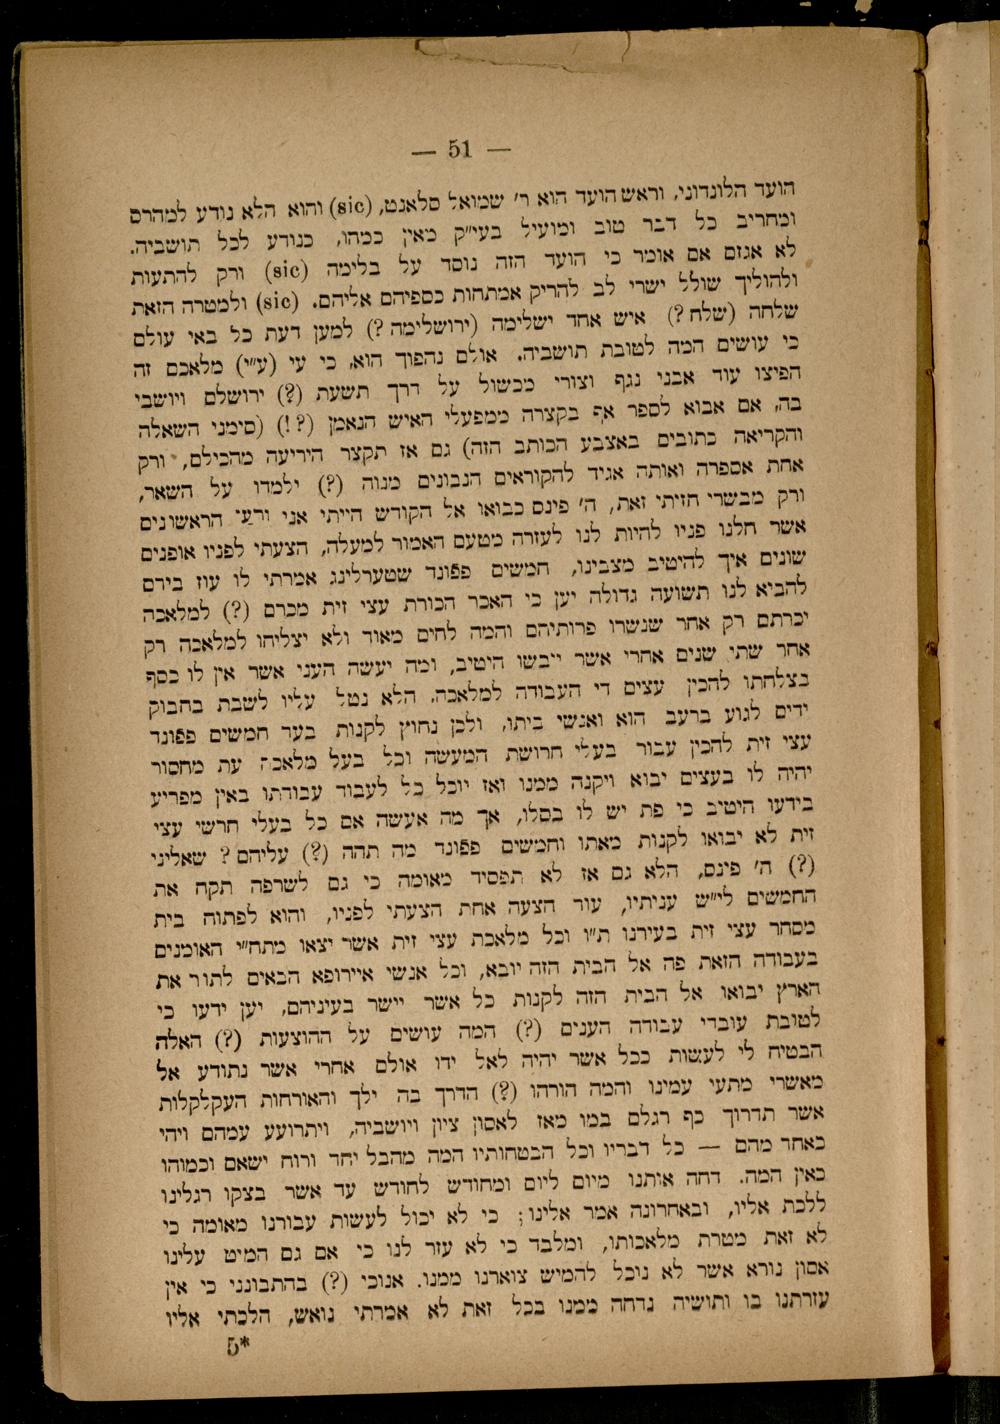 — 51 —
הועד הלונדוני, וראש הועד הוא ר' שמואל סלאנט, (sic) והוא הלא נודע למהרס
ומחריב כל דבר טוב ומועיל בעי"ק מאין כמהו, כנודע לכל תושביה.
לא אגזם אם אומר כי הועד הזה נוסד על בלימה (sic) ורק להתעות
ולהוליך שולל ישרי לב להריק אמתחות כספיהם אליהם. (sic) ולמטרה הזאת
שלחה (שלח ?) איש אחד ישלימה (ירושלימה ?) למען דעת כל באי עולם
כי עושים המה לטובת תושביה. אולם נהפוך הוא, כי עי (ע"י) מלאכם זה
הפיצו עוד אבני נגף וצורי מכשול על דרך תשעת (?) ירושלם ויושבי
בה, אם אבוא לספר אף בקצרה ממפעלי האיש הנאמן (? !) (סימני השאלה
והקריאה כתובים באצבע הכותב הזה) גם אז תקצר היריעה מהכילם, ורק
אחת אספרה ואותה אגיד להקוראים הנבונים מנוה (?) ילמדו על השאר,
ורק מבשרי חזיתי זאת, ה' פינס כבואו אל הקודש הייתי אני ורעי הראשונים
אשר חלנו פניו להיות לנו לעזרה מטעם האמור למעלה, הצעתי לפניו אופנים
שונים איך להיטיב מצבינו, חמשים פפונד שטערלינג אמרתי לו עוז בירם
להביא לנו תשועה גדולה יען כי האכר הכורת עצי זית מכרם (?) למלאכה
יכרתם רק אחר שנשרו פרותיהם והמה לחים מאוד ולא יצליחו למלאכה רק
אחר שתי שנים אחרי אשר ייבשו היטיב, ומה יעשה העני אשר אין לו כסף
בצלחתו להכין עצים די העבודה למלאכה, הלא נטל עליו לשבת בחבוק
ידים לגוע ברעב הוא ואנשי ביתו, ולכן נחוץ לקנות בעד חמשים פפונד
עצי זית להכין עבור בעלי חרושת המעשה וכל בעל מלאכה עת מחסור
יהיה לו בעצים יבוא ויקנה ממנו ואז יוכל כל לעבוד עבודתו באין מפריע
בידעו היטיב כי פת יש לו בסלו, אך מה אעשה אם כל בעלי חרשי עצי
זית לא יבואו לקנות מאתו וחמשים פפונד מה תהה (?) עליהם ? שאליני
(?) ה' פינס, הלא גם אז לא תפסיד מאומה כי גם לשרפה תקח את
החמשים לי"ש עניתיו, עוד הצעה אחת הצעתי לפניו, והוא לפתוח בית
מסחר עצי זית בעירנו ת"ו וכל מלאכת עצי זית אשר יצאו מתח"י האומנים
בעבודה הזאת פה אל הבית הזה יובא, וכל אנשי איירופא הבאים לתור את
הארץ יבואו אל הבית הזה לקנות כל אשר יישר בעיניהם, יען ידעו כי
לטובת עובדי עבודה הענים (?) המה עושים על ההוצעות (?) האלה
הבטיח לי לעשות ככל אשר יהיה לאל ידו אולם אחרי אשר נתודע אל
מאשרי מתעי עמינו והמה הורהו (?) הדרך בה ילך והאורחות העקלקלות
אשר תדרוך כף רגלם במו מאז לאסון ציון ויושביה, ויתרועע עמהם ויהי
כאחד מהם — כל דבריו וכל הבטחותיו המה מהבל יחד ורוח ישאם וכמוהו
כאין המה. דחה אותנו מיום ליום ומחודש לחודש עד אשר בצקו רגלינו
ללכת אליו, ובאחרונה אמר אלינו ; כי לא יכול לעשות עבורנו מאומה כי
לא זאת מטרת מלאכותו, ומלבד כי לא עזר לנו כי אם גם המיט עלינו
אסון נורא אשר לא נוכל להמיש צוארנו ממנו. אנוכי (?) בהתבונני כי אין
עזרתנו בו ותושיה נדחה ממנו בכל זאת לא אמרתי נואש, הלכתי אליו
5*